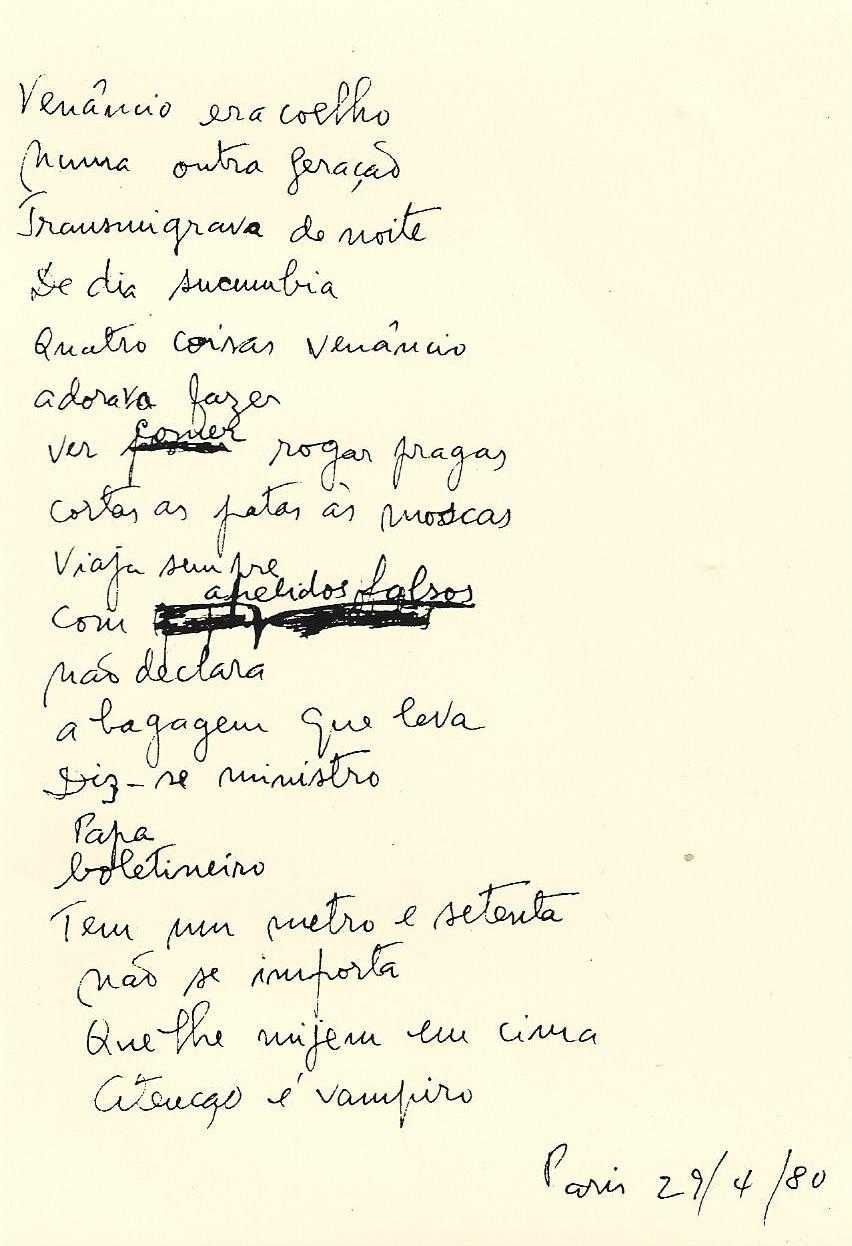 Venâncio era coelho
numa outra geração
Transmigrava de noite
De dia sucumbia
Quatro coisas Venâncio
adorava fazer
ver comer rogar pragas
cortar as patas às moscas
Viaja sempre
com apelidos falsos
não declara
a bagagem que leva
Diz-se ministro
Papa
boletineiro
Tem um metro e setenta
não se importa
Que lhe mijem em cima
Atenção é vampiro
Paris 29/4/80